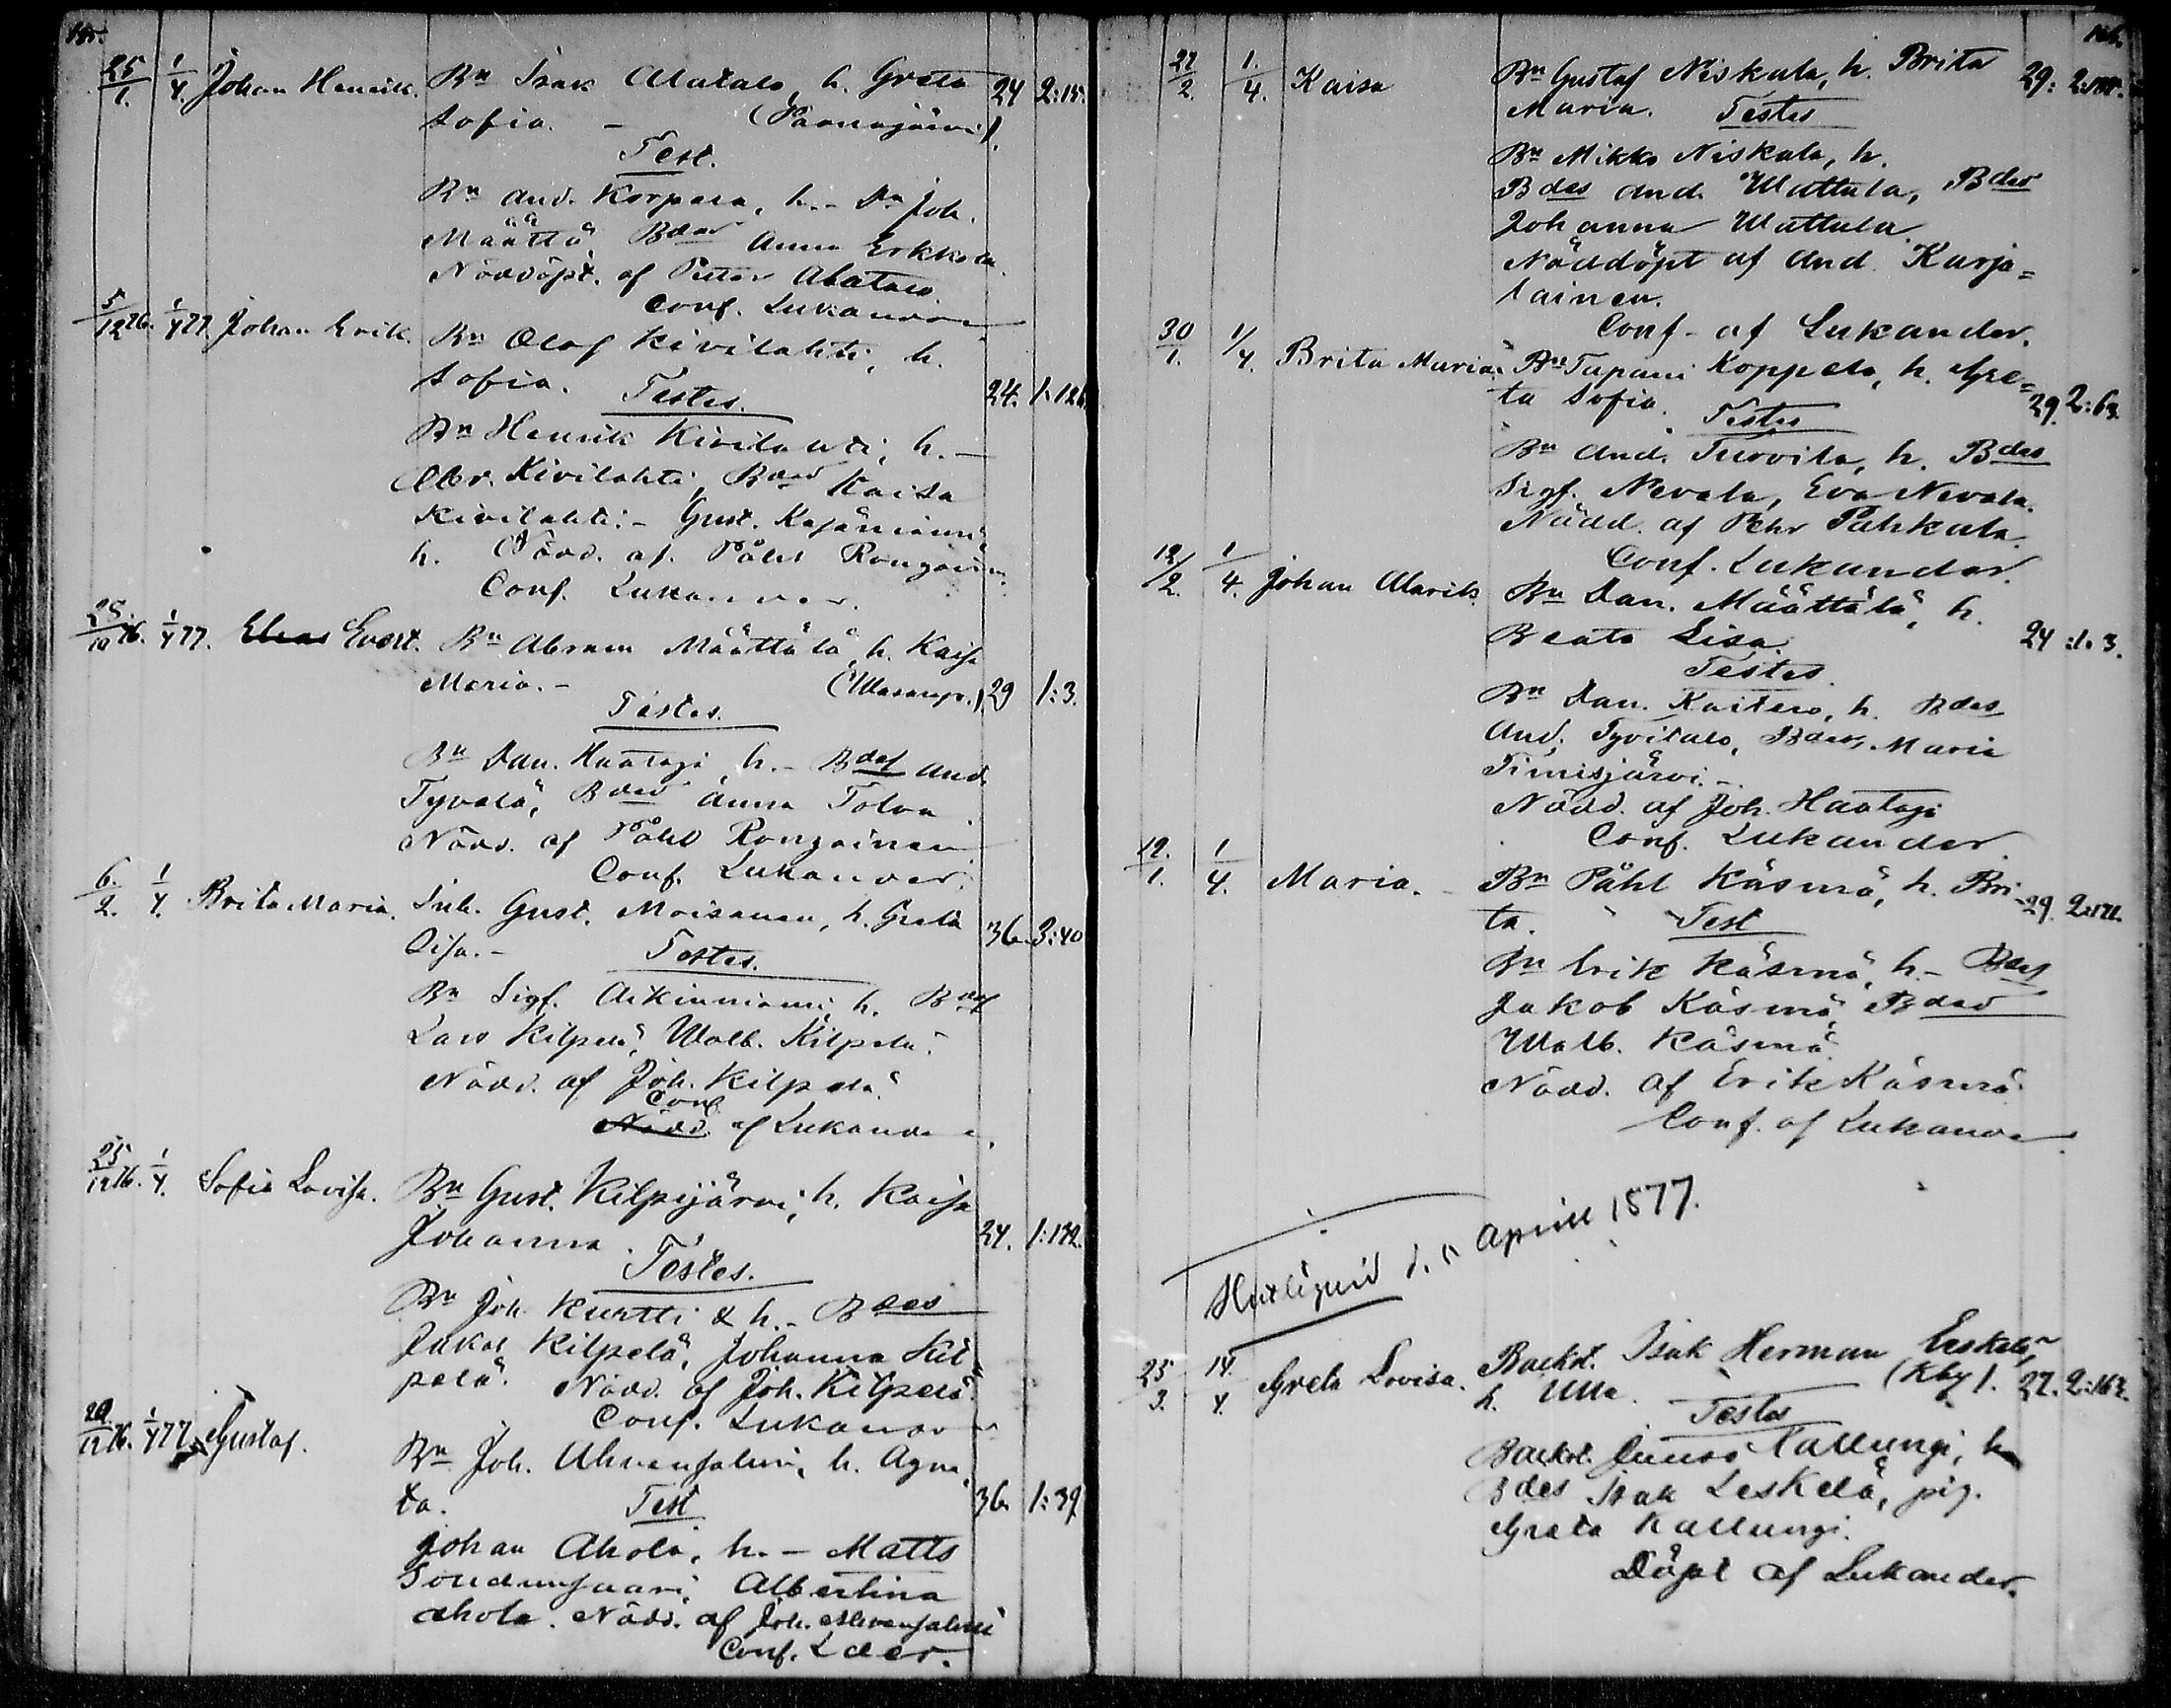 25/1. 1/4. Johan Henrik. Bn Isak Alatalo, h. Greta 24 2:15.
Sofia. - (Paanajärvi).
Test.
Bn And. Korpara, h. - Dn Joh.
Määttä, Bdar Anna Erkkola.
Nöddöpt. af Petter Alatalo.
Conf. Lukander
5/12 76. 1/4 77. Johan Erik. Bn Olof Kivilahti, h.
Sofia. 24. 1:126.
Testes.
Bn Henrik Kivilahti, h. -
Abr. Kivilahti, Bdar Kaisa
Kivilahti. - Gust. Kajäniemi,
h. Nödd. af Påhl Rongainen.
Conf. Lukander.
76. 1/4 77. Elias Evert. Bn Abram Määttälä, h. Kaisa
Maria. - 29 1:3.
Testes.
Bn Dan. Haataja, h. - Bdes And.
Tyvelä, Bdar Anna Tolva.
Nödd. af Påhl Rongainen.
Conf. Lukander.
6./2. 1/4. Brita Maria. Inh. Gust. Moisanen, h. Greta 36. 3:40
Lisa. -
Testes.
Bn Sigf. Aikinniemi, h. Bdes
Lars Kilpelä, Walb. Kilpelä.
Nödd. af Joh. Kilpelä.
Conf
Nödd. af Lukander.
25/12 76. 1/4. Sofia Lovisa. Bn Gust. Kilpijärvi, h. Kaisa
Johanna. 24. 1:132.
Testes.
Bn Joh. Kurtti & h. - Bdes
Jakob Kilpelä, Johanna Kil-
pelä. Nödd. af Joh. Kilpelä.
Conf. Lukander
1/4 77. Gustaf. Bn Joh. Ahvensalmi, h. Agne-
ta. 36. 1:39
Test
Johan Ahola, h. - Matts
Albertina
Ahola. Nödd. af Joh. Ahvensalmi
Conf. Lder.
22/2. 1./4. Kaisa Bn Gustaf Niskala, h. Brita 29:
Maria. Testes
Bn Mikko Niskala, h.
Bdes And. Wattula, Bdar
Johanna Wattula
Nöddöpt af And. Karja=
lainen.
Conf. af Lukander.
30/1. 1/4. Brita Maria. Bn Tapani Koppelo, h. Gre=
ta Sofia. 29. 2:63.
Testes
Bn And. Turvila, h. Bdes
Sigf. Nevala, Eva Nevala.
Nödd. af Pehr Pahkala.
Conf. Lukander.
12/2. 1/4. Johan Alarik. Bn Dan. Määttälä, h.
Beata Lisa. 24 :1. 3.
Testes.
Bn Dan. Kaitera, h. Bdes
And. Tyvitalo, Bdar Maria
Timisjärvi. -
Nödd. af Joh. Haataja
Conf. Lukander.
12./1. 1/4. Maria. Bn Påhl Käsmä, h. Bri- 29. 2:171.
ta. Test
Bn Erik Käsmä, h. - Bdes
Jakob Käsmä Bdar
Walb. Käsmä.
Nödd. af Erik Käsmä.
Conf. af Lukander
April 1877.
25/3. 14./4. Greta Lovisa. Backst. Isak Herman Leskelä,
h. Ulla. (Kby). 27. 2:163.
Testes
Backst. Juuso Kallungi, h
Bdes Isak Leskelä, pig.
Greta Kallungi.
Döpt af Lukander.